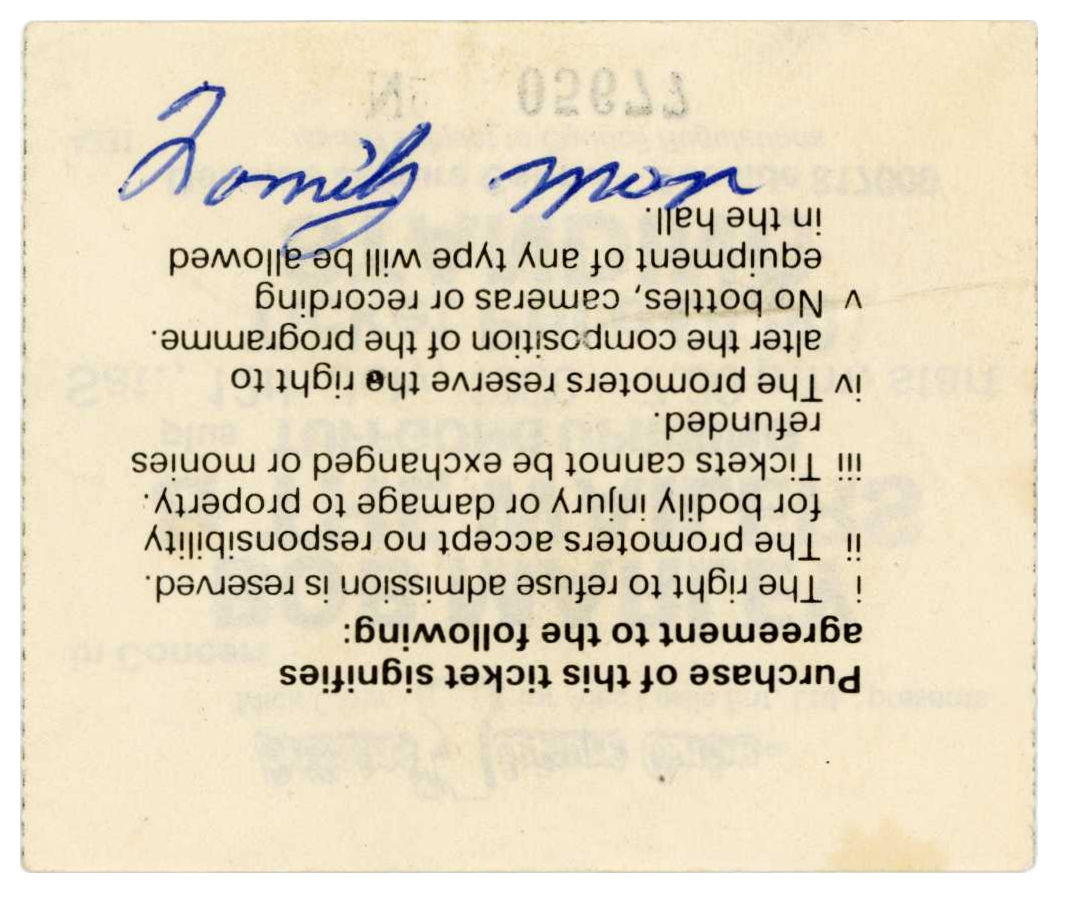 Family man
Purchase of this ticket signifies
agreement to the following:
i The right to refuse admission is reserved.
ii The promoters accept no responsibility
for bodily injury or damage to property.
iii Tickets cannot be exchanged or monies
refunded.
iv The promoters reserve the right to
alter the composition of the programme.
v No bottles, cameras or recording
equipment of any type will be allowed
in the hall.